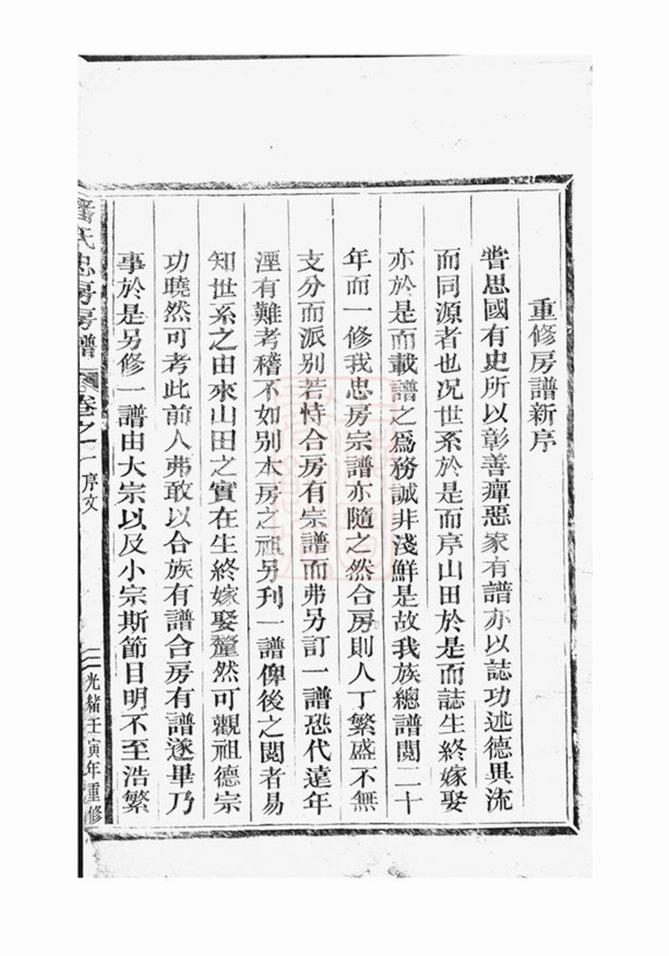 重修房譜新序
嘗思國有史所以彰善癉惡家有譜亦以誌功述德異流
而同源者也况世系於是而序山田於是而誌生終嫁娶
亦於是而載譜之爲務誠非淺鮮是故我族總譜閱二十
年而一修我忠房宗譜亦隨之然合房則人丁繁盛不無
支分而派別若恃合房有宗譜而弗另訂一譜恐代遠年
湮有難考稽不如別本房之祖另刊一譜俾後之閱者易
知世系之由來山田之實在生終嫁娶釐然可觀祖德宗
功曉然可考此前人弗敢以合族有譜合房有譜遂畢乃
事於是另修一譜由大宗以及小宗斯節目明不至浩繁
潘氏忠房房譜 卷之一 序文 一 光緒壬寅年重修